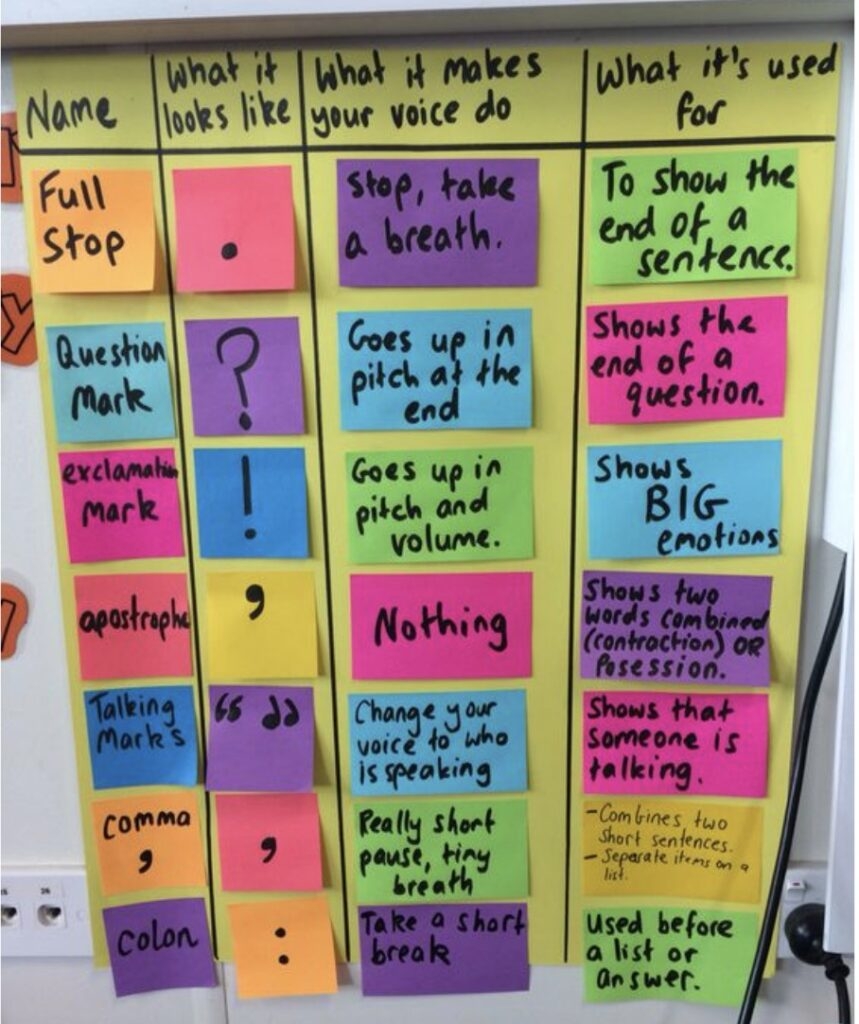 Name
What it
looks like
What it makes
your voice do
What it's used
for
Full
Stop
.
Stop, take
a breath.
To show the
end of a
sentence.
Question
Mark
?
Goes up in
pitch at the
end
Shows the
end of a
question.
exclamation
Mark
!
Goes up in
pitch and
volume.
Shows
BIG
emotions
apostrophe
,
Nothing
Shows two
words combined
(contraction) OR
Posession.
Talking
Marks
“ ”
Change your
voice to who
is speaking
Shows that
someone is
talking.
comma
,
,
Really short
pause, tiny
breath
- Combines two
short sentences.
- Separate items on a
list.
colon
:
Take a short
break
Used before
a list or
answer.